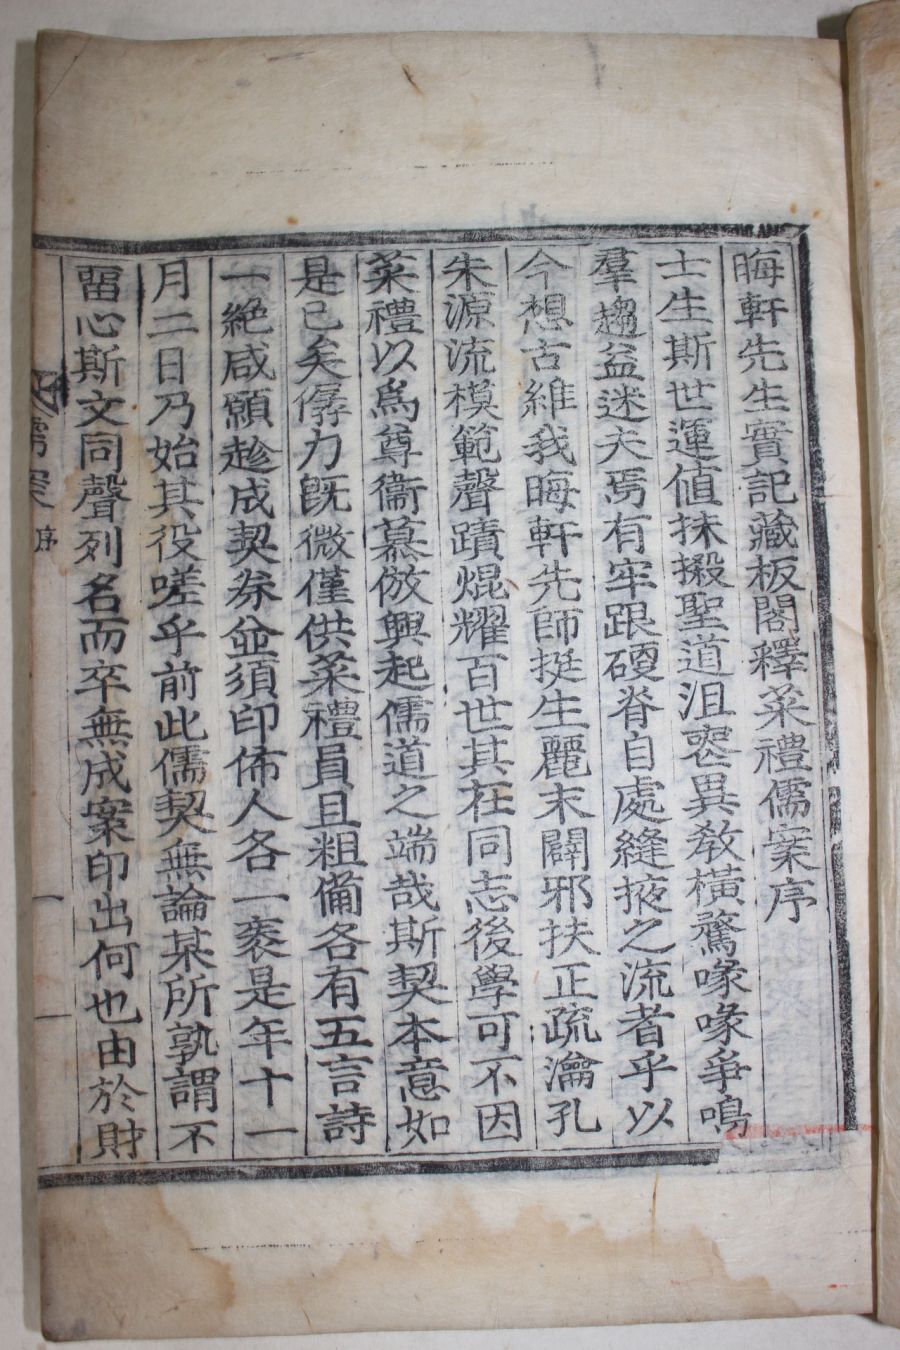 晦軒先生實記藏板閣釋菜禮儒案序
士生斯世運値抹摋聖道沮喪異敎橫騖喙喙爭鳴
羣趨益迷夫焉有牢跟硬脊自處縫掖之流者乎以
今想古維我晦軒先師挺生麗末闢邪扶正疏瀹孔
朱源流模範聲蹟焜耀百世其在同志後學可不因
菜禮以爲尊衞慕倣興起儒道之端哉斯契本意如
是已矣孱力旣微僅供菜禮員且粗備各有五言詩
一絶咸願趁成契券並須印佈人各一袠是年十一
月二日乃始其役嗟乎前此儒契無論某所孰謂不
留心斯文同聲列名而卒無成案印出何也由於財
儒案
序
一